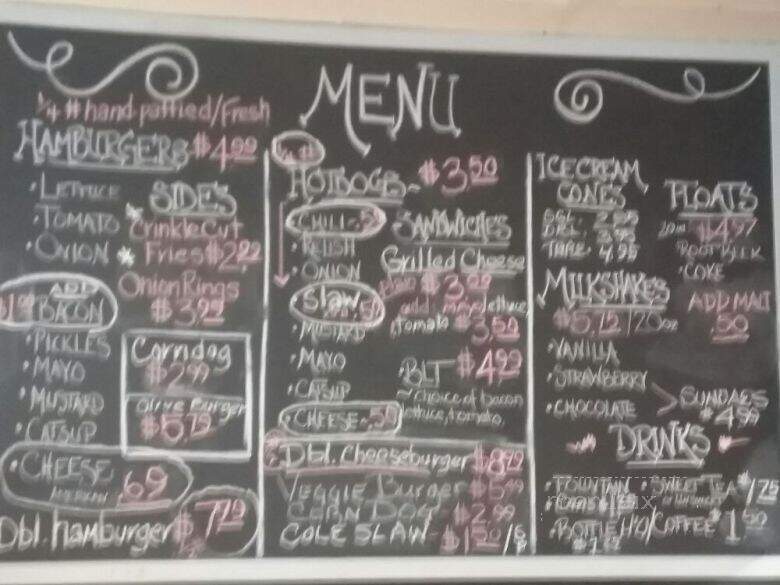 MENU
1/4 # hand pattied/Fresh
HAMBURGERS $4.99
• LETTUCE
• TOMATO
• ONION
ADD
BACON
• PICKLES
• MAYO
• MUSTARD
• CATSUP
• CHEESE
AMERICAN .69
Dbl. hamburger $7.29
SIDES
Crinkle Cut
Fries $2.99
Onion Rings
$3.99
Corndog
$2.99
Olive Burger
$5.79
1/4 #
HOTDOGS ~ $3.50
CHILI .50
• RELISH
• ONION
• Slaw .50
• MUSTARD
• MAYO
• CATSUP
• CHEESE .50
SANDWICHES
Grilled Cheese
$3.00
add mayo, lettuce,
tomato $3.50
• BLT $4.99
~ choice of bacon
lettuce, tomato
Dbl. Cheeseburger $8.29
VEGGIE Burger $5.49
CORN DOG $2.99
COLE SLAW
ICECREAM
CONES
TRPL 4.95
FLOATS
20oz $4.97
ROOT BEER
• COKE
MILKSHAKES
$5.72/20oz
• VANILLA
• STRAWBERRY
• CHOCOLATE
ADD MALT
.50
SUNDAES
$4.99
DRINKS
• FOUNTAIN SWEET TEA $1.75
• BOTTLE H2O/COFFEE $1.50